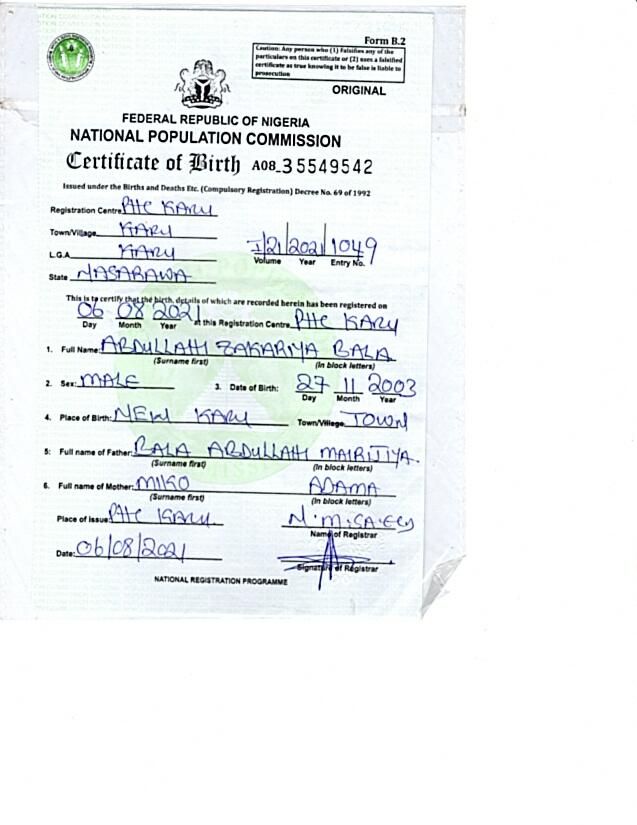 Form B.2
Caution: Any person who (1) Falsifies any of the
particulars on this certificate or (2) uses a falsified
certificate as true knowing it to be false is liable to
prosecution
ORIGINAL
FEDERAL REPUBLIC OF NIGERIA
NATIONAL POPULATION COMMISSION
Certificate of Birth A08_35549542
Issued under the Births and Deaths Etc. (Compulsory Registration) Decree No. 69 of 1992
Registration Centre PHC KARU
Town/Village KARU
L.G.A KARU
I/21/2021/1049
Volume Year Entry No.
State NASARAWA
This is to certify that the birth, details of which are recorded herein has been registered on
06 08 2021 at this Registration Centre PHC KARU
Day Month Year
1. Full Name: ABDULLAHI ZAKARIYA BALA
(Surname first) (In block letters)
2. Sex: MALE 3. Date of Birth: 27 11 2003
Day Month Year
4. Place of Birth: NEW KARU Town/Village TOWN
5: Full name of Father: BALA ABDULLAHI
(Surname first) (In block letters)
6. Full name of Mother: ADAMA
(Surname first) (In block letters)
Place of issue: PHC KARU
Name of Registrar
Date: 06/08/2021
Signature of Registrar
NATIONAL REGISTRATION PROGRAMME